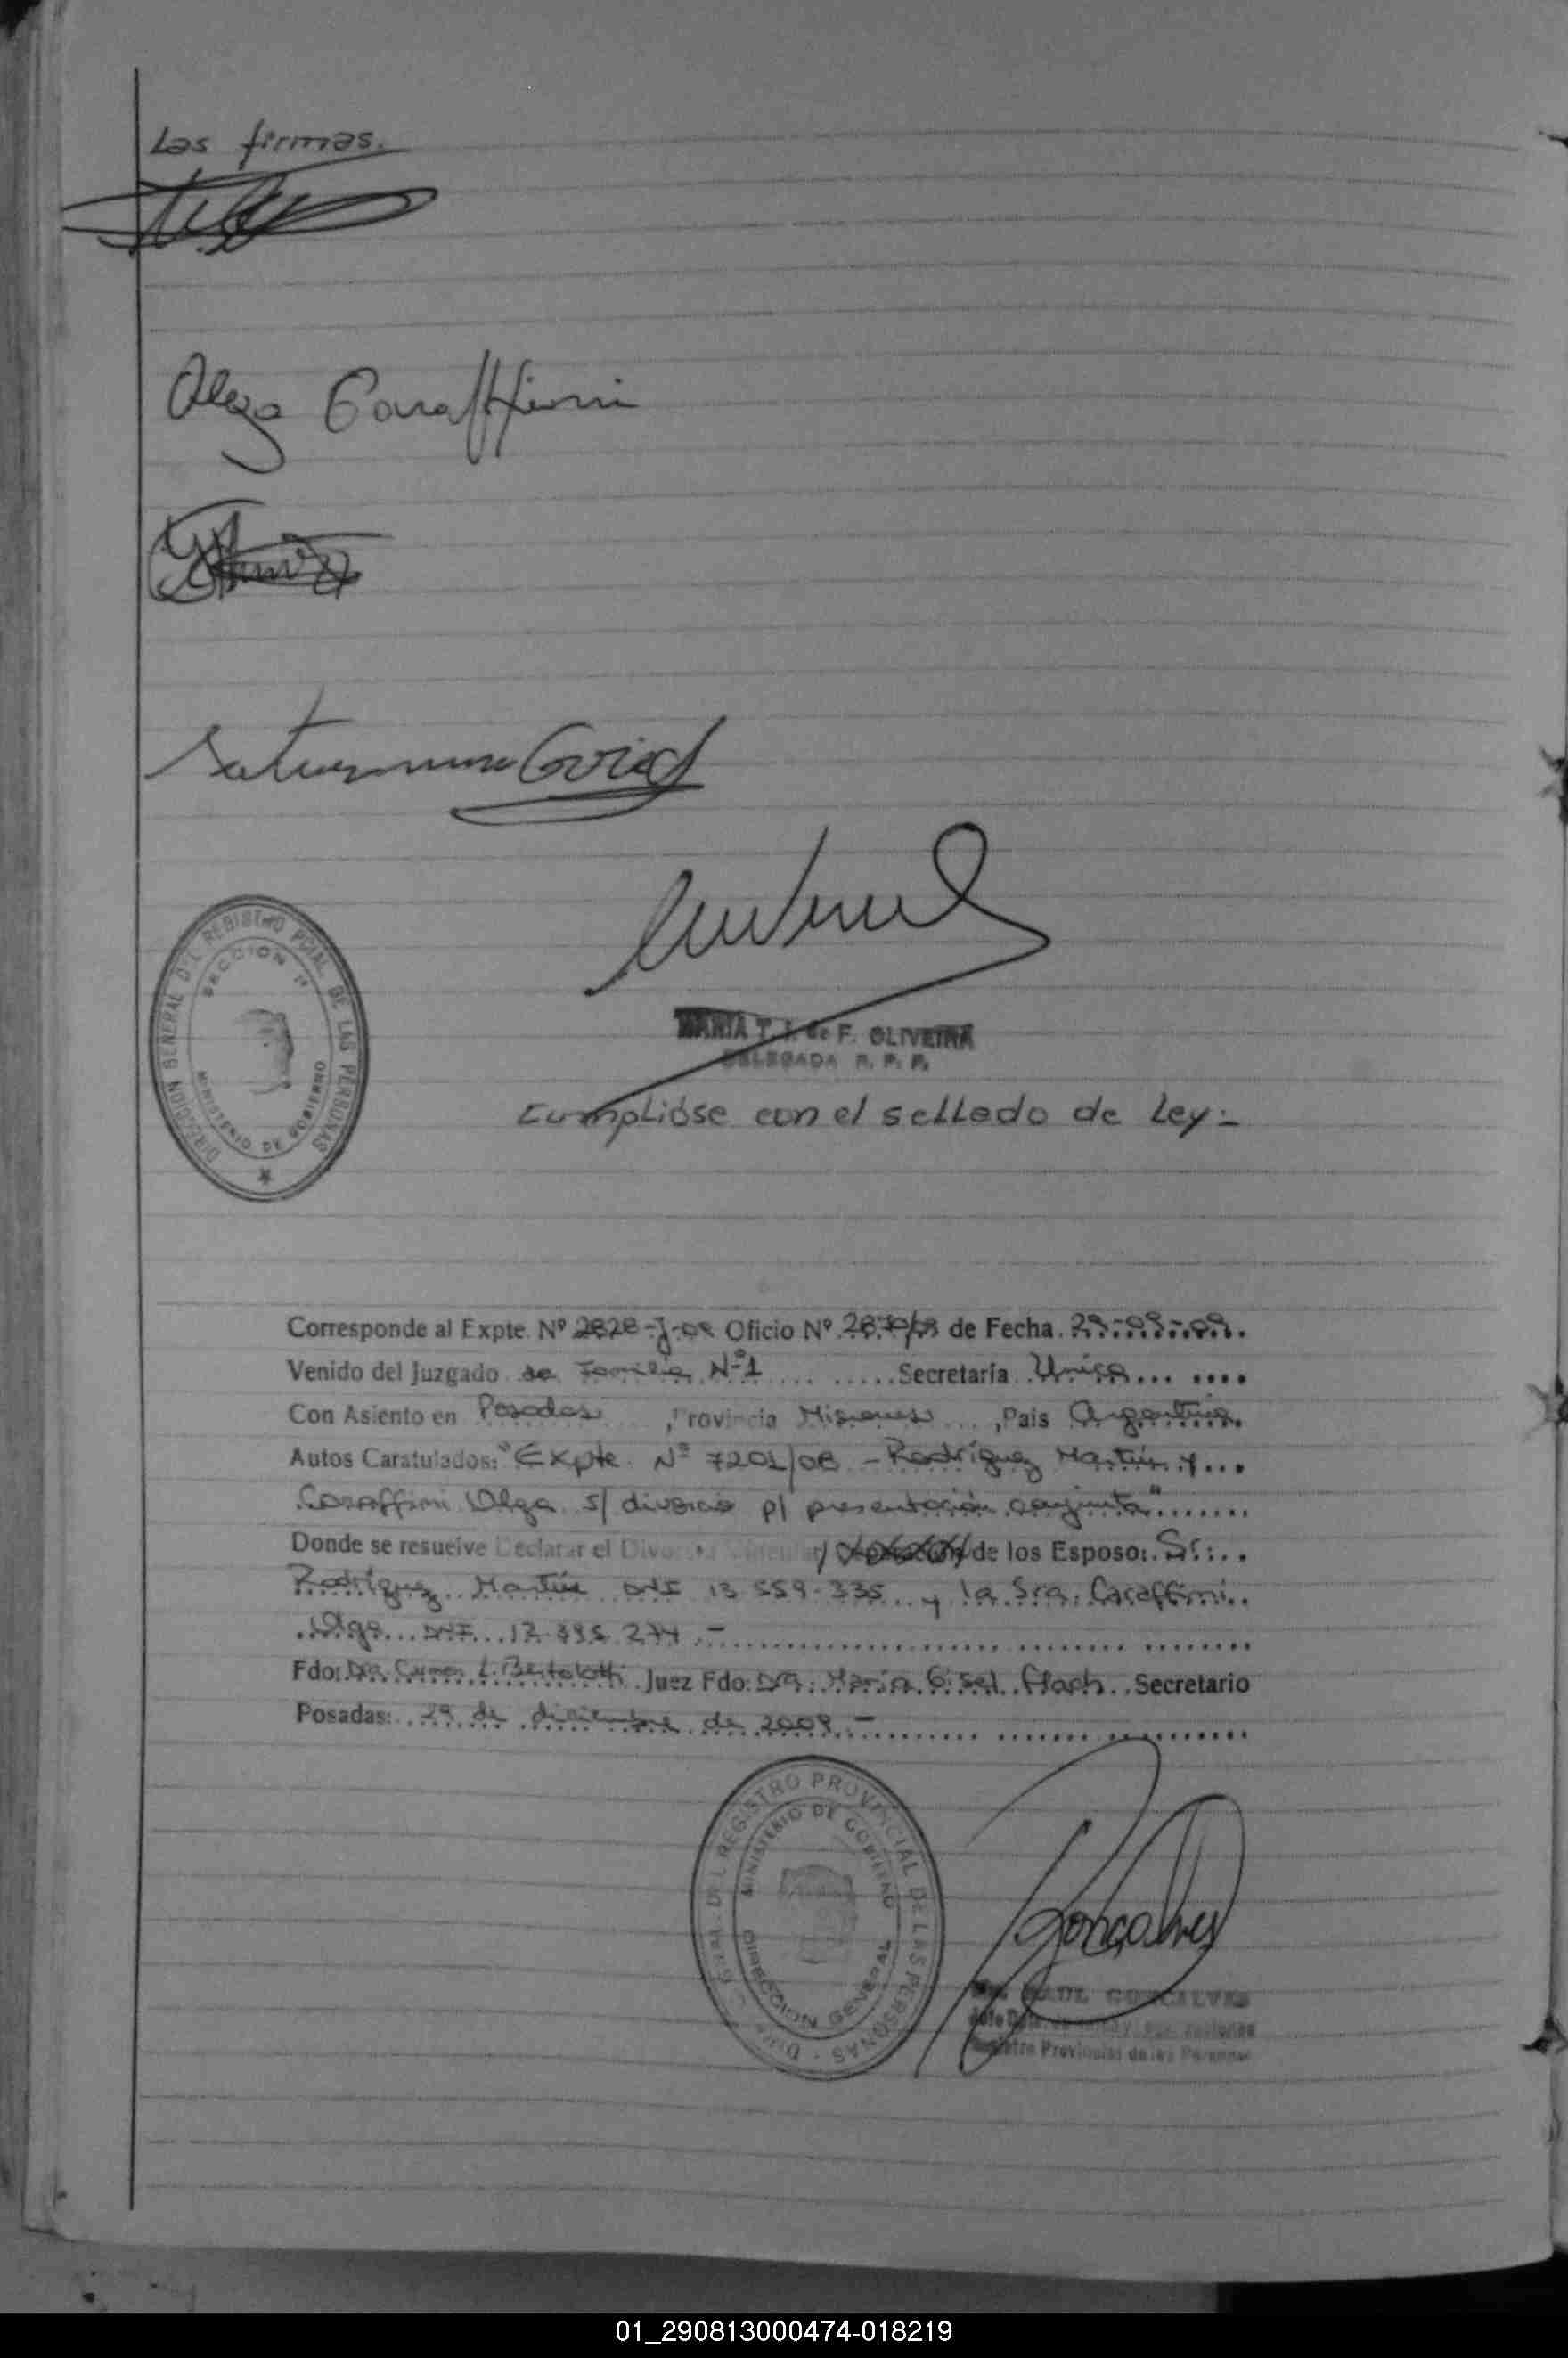 Las firmas.
Olga Caraffini
MARIA T. I. de F. OLIVEIRA
DELEGADA R. P. P.
DIRECCION GENERAL DEL REGISTRO PCIAL DE LAS PERSONAS
SECCION
MINISTERIO DE GOBIERNO
Cumplióse con el sellado de Ley:-
Corresponde al Expte. Nº 2828-J-09 Oficio Nº de Fecha
Venido del Juzgado de Familia Nº1 Secretaría Unica
Con Asiento en Posadas, Provincia Misiones, País Argentina.
Autos Caratulados: "Expte. Nº 7201/08 - Rodríguez Martín y
Caraffini Olga s/ divorcio p/ presentación conjunta"
Donde se resuelve Declarar el Divorcio Vincular/ de los Esposo: Sr.:
Rodríguez Martín DNI 13.559.335 y la Sra. Caraffini
Olga DNI
Fdo: Dra. L. Bertolotti Juez Fdo: Dra. María Gisel Secretario
Posadas: 29 de diciembre de 2009.-
REGISTRO PROVINCIAL DE LAS PERSONAS
MINISTERIO DE GOBIERNO
DIRECCION GENERAL
Goncalves
RAUL GONCALVES
Registro Provincial de las Personas
01_290813000474-018219